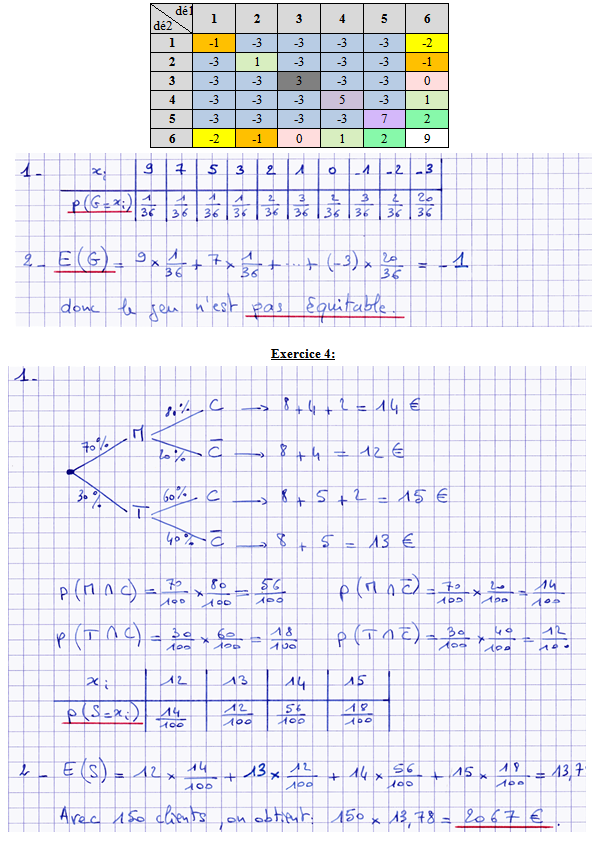 dé1 1 2 3 4 5 6
dé2
1 -1 -3 -3 -3 -3 -2
2 -3 1 -3 -3 -3 -1
3 -3 -3 3 -3 -3 0
4 -3 -3 -3 5 -3 1
5 -3 -3 -3 -3 7 2
6 -2 -1 0 1 2 9
1- xi 9 7 5 3 2 1 0 -1 -2 -3
p(G=xi) 1/36 1/36 1/36 1/36 2/36 3/36 2/36 3/36 2/36 20/36
2- E(G) = 9 × 1/36 + 7 × 1/36 + ... + (-3) × 20/36 = -1
donc le jeu n'est pas équitable.
Exercice 4:
1-
80% C → 8+4+2 = 14 €
70% M
20% C̅ → 8+4 = 12 €
30% T
60% C → 8+5+2 = 15 €
40% C̅ → 8+5 = 13 €
p(M∩C) = 70/100 × 80/100 = 56/100 p(M∩C̅) = 70/100 × 20/100 = 14/100
p(T∩C) = 30/100 × 60/100 = 18/100 p(T∩C̅) = 30/100 × 40/100 = 12/100
xi 12 13 14 15
p(S=xi) 14/100 12/100 56/100 18/100
2- E(S) = 12 × 14/100 + 13 × 12/100 + 14 × 56/100 + 15 × 18/100 = 13,7
Avec 150 clients, on obtient: 150 × 13,78 = 2067 €.